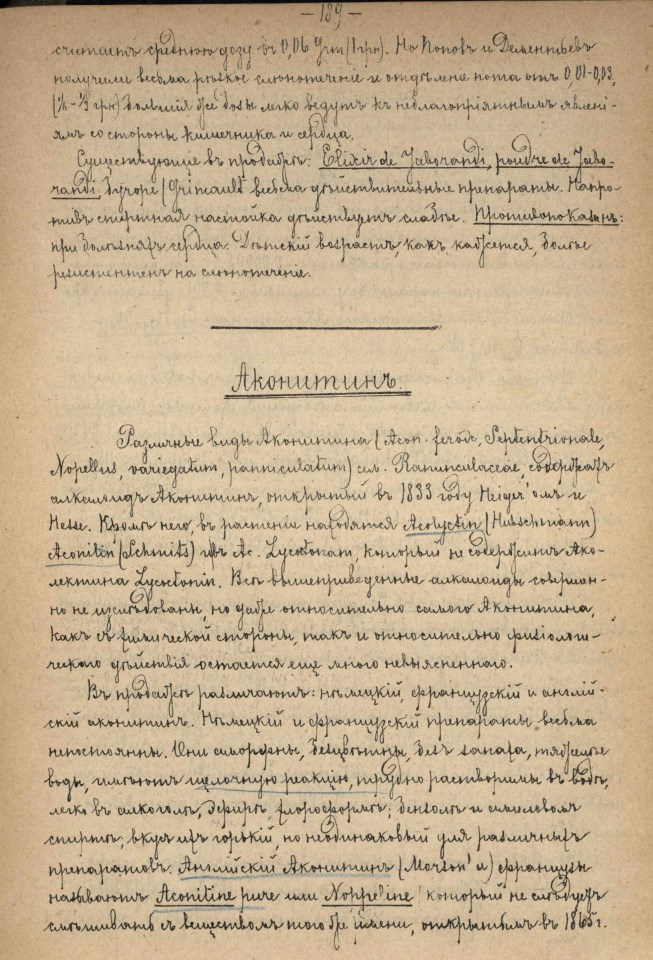 — 189 —
считаетъ среднюю дозу въ 0,06 grm (1 грн). Но Поповъ и Дементьевъ
получили весьма рѣзкое слюнотеченіе и отдѣленіе пота отъ 0,01-0,03,
грн) большія же дозы легко ведутъ къ неблагопріятнымъ явлені-
ямъ со стороны кишечника и сердца.
Существующіе въ продажѣ: Elixir de Jaborandi, poudre de Jabo-
randi, Сѵропъ (Grimault) весьма дѣйствительные препараты. Напро-
тивъ спиртная настойка дѣйствуетъ слабѣе. Противопоказанъ:
при болѣзняхъ сердца. Дѣтскій возрастъ, какъ кажется, болѣе
резистентенъ на слюнотеченіе.
Аконитинъ.
Различные виды Аконитина (Acon. feroce, Septentrionale,
Napellus, variegatum, panniculatum) сем. Ranunculaceae, содержатъ
алкалоидъ Аконитинъ, открытый въ 1833 году Heiger'омъ и
Hesse. Кромѣ него, въ растеніи находятся Acolyctin (Hubschmann)
Aconitin (Schmits) изъ Ac. Lycoctonam, который не содержитъ Ако-
лектина Lycoctonin. Всѣ вышеприведенные алкалоиды совершен-
но не изслѣдованы, но даже относительно самого Аконитина,
какъ съ химической стороны, такъ и относительно физіологи-
ческаго дѣйствія остается еще много невыясненнаго.
Въ продажѣ различаютъ: нѣмецкій, французскій и англій-
скій аконитинъ. Нѣмецкій и французскій препараты весьма
непостоянны. Они аморфны, безцвѣтны, безъ запаха, тяжелѣе
воды, имѣютъ щелочную реакцію, трудно растворимы въ водѣ,
легко въ алкоголѣ, эфирѣ, хлороформѣ, бензолѣ и амиловомъ
спиртѣ; вкусъ ихъ горькій, но неодинаковый для различныхъ
препаратовъ. Англійскій Аконитинъ (Morson'a) французы
называютъ Aconitine pure или Nappeline который не слѣдуетъ
смѣшивать съ веществомъ того же имени, открытымъ въ 1865 г.